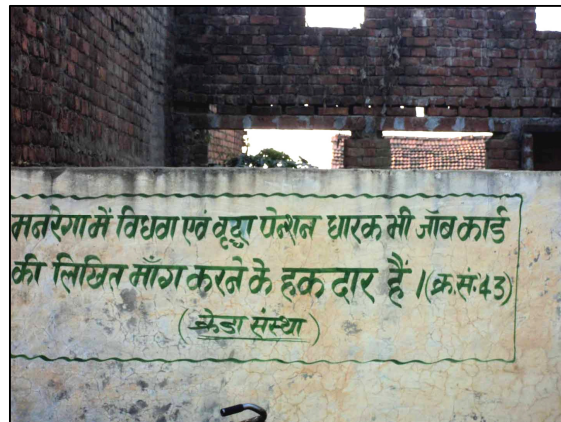 मनरेगा में विधवा एवं वृद्धा पेन्शन धारक भी जॉब कार्ड
की लिखित माँग करने के हक दार हैं । (क्र.सं. 43)
(क्रेडा संस्था)